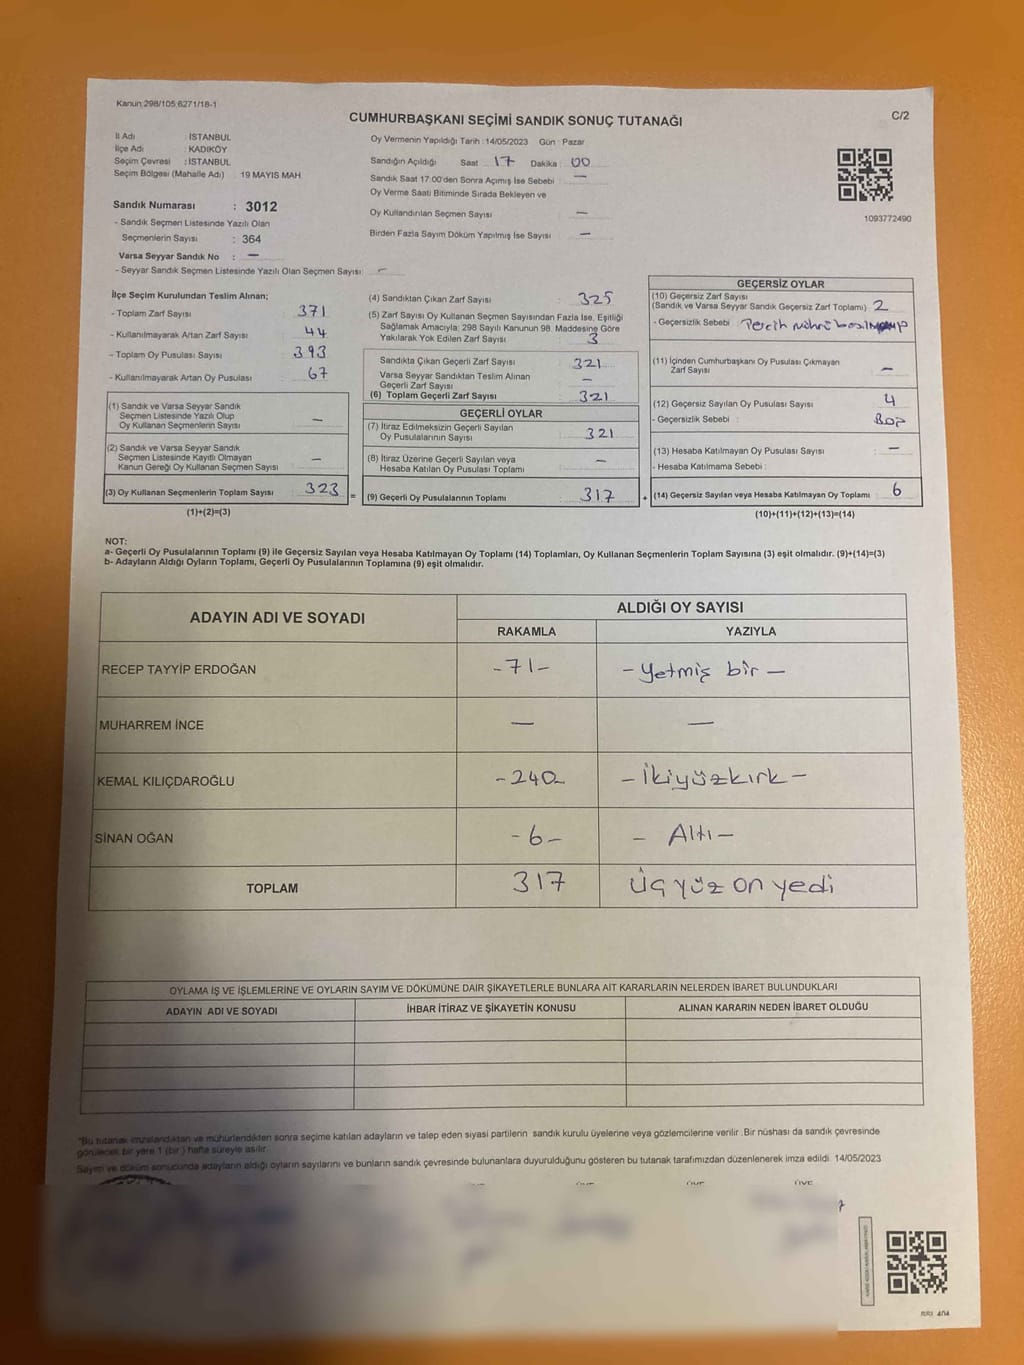 Kanun 298/105 6271/18-1
CUMHURBAŞKANI SEÇİMİ SANDIK SONUÇ TUTANAĞI
C/2
İl Adı : İSTANBUL
İlçe Adı : KADIKÖY
Seçim Çevresi : İSTANBUL
Seçim Bölgesi (Mahalle Adı) 19 MAYIS MAH.
Oy Vermenin Yapıldığı Tarih : 14/05/2023 Gün : Pazar
Sandığın Açıldığı Saat 17 Dakika : 00
Sandık Saat 17:00'den Sonra Açımış İse Sebebi : —
Oy Verme Saati Bitiminde Sırada Bekleyen ve
Oy Kullandırılan Seçmen Sayısı —
Birden Fazla Sayım Döküm Yapılmış İse Sayısı —
1093772490
Sandık Numarası : 3012
- Sandık Seçmen Listesinde Yazılı Olan
Seçmenlerin Sayısı : 364
Varsa Seyyar Sandık No : —
- Seyyar Sandık Seçmen Listesinde Yazılı Olan Seçmen Sayısı: —
İlçe Seçim Kurulundan Teslim Alınan;
- Toplam Zarf Sayısı : 371
- Kullanılmayarak Artan Zarf Sayısı : 44
- Toplam Oy Pusulası Sayısı : 393
- Kullanılmayarak Artan Oy Pusulası : 67
(1) Sandık ve Varsa Seyyar Sandık
Seçmen Listesinde Yazılı Olup
Oy Kullanan Seçmenlerin Sayısı —
(2) Sandık ve Varsa Seyyar Sandık
Seçmen Listesinde Kayıtlı Olmayan
Kanun Gereği Oy Kullanan Seçmen Sayısı —
(3) Oy Kullanan Seçmenlerin Toplam Sayısı : 323 =
(1)+(2)=(3)
(4) Sandıktan Çıkan Zarf Sayısı : 325
(5) Zarf Sayısı Oy Kullanan Seçmen Sayısından Fazla İse, Eşitliği
Sağlamak Amacıyla; 298 Sayılı Kanunun 98. Maddesine Göre
Yakılarak Yok Edilen Zarf Sayısı : 3
Sandıkta Çıkan Geçerli Zarf Sayısı : 321
Varsa Seyyar Sandıktan Teslim Alınan
Geçerli Zarf Sayısı —
(6) Toplam Geçerli Zarf Sayısı : 321
GEÇERLİ OYLAR
(7) İtiraz Edilmeksizin Geçerli Sayılan
Oy Pusulalarının Sayısı : 321
(8) İtiraz Üzerine Geçerli Sayılan veya
Hesaba Katılan Oy Pusulası Toplamı —
(9) Geçerli Oy Pusulalarının Toplamı : 317 +
GEÇERSİZ OYLAR
(10) Geçersiz Zarf Sayısı
(Sandık ve Varsa Seyyar Sandık Geçersiz Zarf Toplamı) 2
- Geçersizlik Sebebi : Tercih mührü
(11) İçinden Cumhurbaşkanı Oy Pusulası Çıkmayan
Zarf Sayısı —
(12) Geçersiz Sayılan Oy Pusulası Sayısı : 4
- Geçersizlik Sebebi : Boş
(13) Hesaba Katılmayan Oy Pusulası Sayısı : —
- Hesaba Katılmama Sebebi :
(14) Geçersiz Sayılan veya Hesaba Katılmayan Oy Toplamı : 6
(10)+(11)+(12)+(13)=(14)
NOT:
a- Geçerli Oy Pusulalarının Toplamı (9) ile Geçersiz Sayılan veya Hesaba Katılmayan Oy Toplamı (14) Toplamları, Oy Kullanan Seçmenlerin Toplam Sayısına (3) eşit olmalıdır. (9)+(14)=(3)
b- Adayların Aldığı Oyların Toplamı, Geçerli Oy Pusulalarının Toplamına (9) eşit olmalıdır.
ADAYIN ADI VE SOYADI
ALDIĞI OY SAYISI
RAKAMLA YAZIYLA
RECEP TAYYİP ERDOĞAN -71- -Yetmiş bir-
MUHARREM İNCE — —
KEMAL KILIÇDAROĞLU -240- -İkiyüzkırk-
SİNAN OĞAN -6- - Altı-
TOPLAM 317 Üçyüz on yedi
OYLAMA İŞ VE İŞLEMLERİNE VE OYLARIN SAYIM VE DÖKÜMÜNE DAİR ŞİKAYETLERLE BUNLARA AİT KARARLARIN NELERDEN İBARET BULUNDUKLARI
ADAYIN ADI VE SOYADI İHBAR İTİRAZ VE ŞİKAYETİN KONUSU ALINAN KARARIN NEDEN İBARET OLDUĞU
*Bu tutanak imzalandıktan ve mühürlendikten sonra seçime katılan adayların ve talep eden siyasi partilerin sandık kurulu üyelerine veya gözlemcilerine verilir. Bir nüshası da sandık çevresinde
görülecek bir yere 1 (bir ) hafta süreyle asılır.
Sayım ve döküm sonucunda adayların aldığı oyların sayılarını ve bunların sandık çevresinde bulunanlara duyurulduğunu gösteren bu tutanak tarafımızdan düzenlenerek imza edildi. 14/05/2023
ÜYE